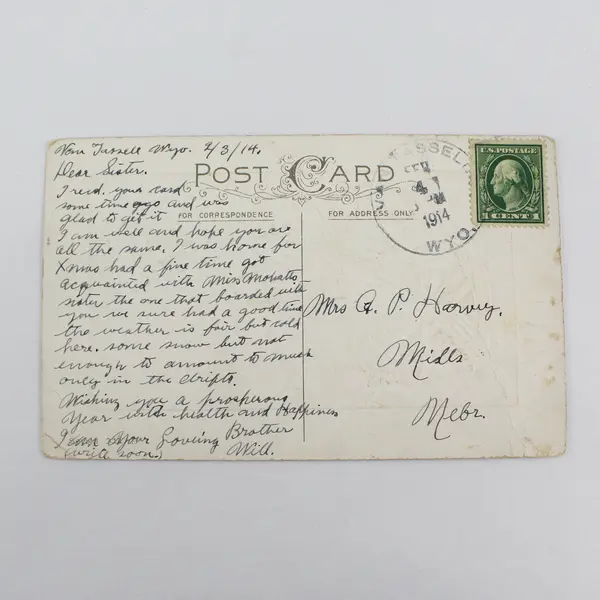 Van Tassell Wyo. 2/3/14.
Dear Sister.
POST CARD
I recd. your card
some time ago and was
glad to get it
FOR CORRESPONDENCE
FOR ADDRESS ONLY
I am well and hope you are
all the same. I was home for
Xmas had a fine time got
acquainted with Miss
sister the one that boarded with
you we sure had a good time
the weather is fair but cold
here. some snow but not
enough to amount to much
only in the drifts.
Wishing you a prosperous
Year with health and Happiness
I am Your Loveing Brother
(write soon.) Will.
TASSELL
FEB
4
1914
WYO.
U.S. POSTAGE
1 CENT 1
Mrs A. P. Harvey,
Mills
Nebr.